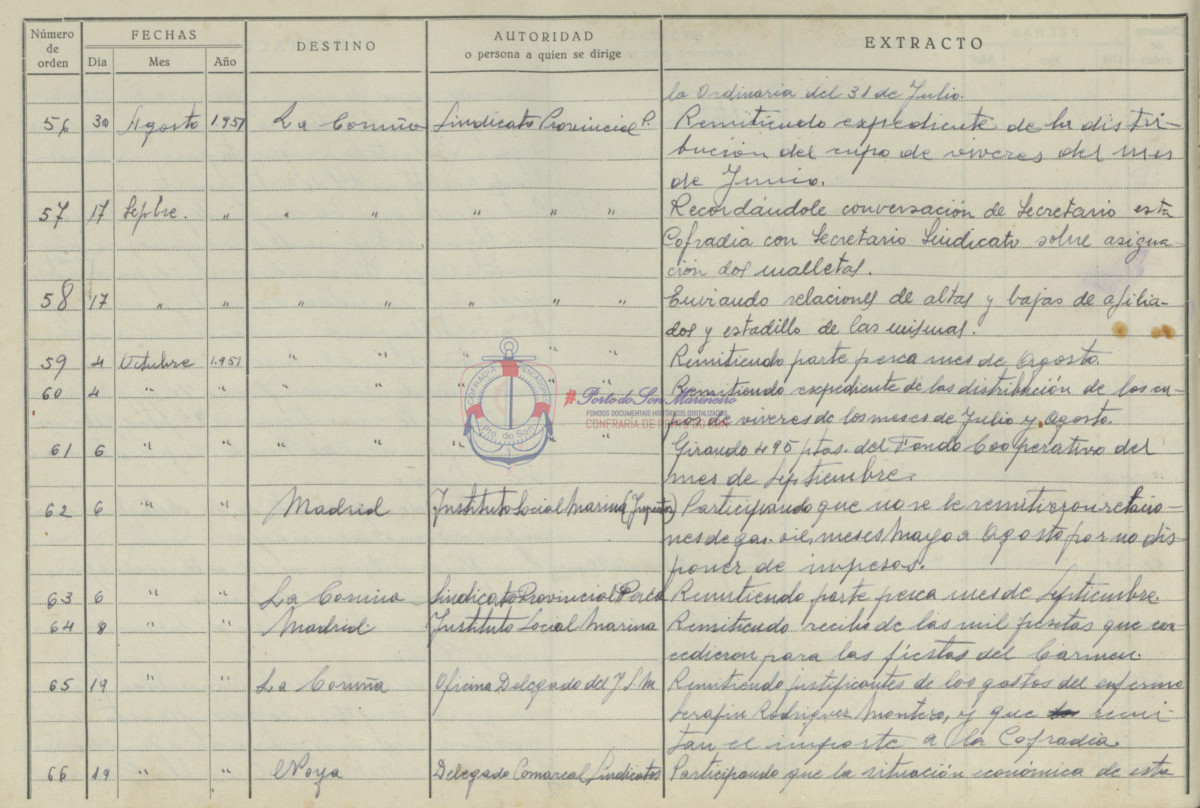 Número de orden FECHAS DESTINO AUTORIDAD o persona a quien se dirige EXTRACTO
Día Mes Año
la Ordinaria del 31 de Julio.
56 30 Agosto 1.951 La Coruña Sindicato Provincial P. Remitiendo expediente de la distri-
bución del cupo de viveres del mes
de Junio.
57 17 Sepbre. " " " " " " Recordándole conversación de Secretario esta
Cofradia con Secretario Sindicato sobre asigna
ción dos malletas.
58 17 " " " " " " " Enviando relaciones de altas y bajas de afilia-
dos y estadillo de las mismas.
59 4 Octubre 1.951 " " " " Remitiendo parte pesca mes de Agosto.
60 4 " " " " " " Remitiendo expediente de las distribución de los cu-
pos de viveres de los meses de Julio y Agosto.
61 6 " " " " " " " Girando 495 ptas. del Fondo Cooperativo del
mes de Septiembre.
62 6 " " Madrid Instituto Social Marina Participando que no se le remitieron relacio-
nes de gas-oil, meses Mayo a Agosto por no dis
poner de impesos.
63 6 " " La Coruña Sindicato Provincial Pesca Remitiendo parte pesca mes de Septiembre
64 8 " " Madrid Instituto Social Marina Remitiendo recibo de las mil pesetas que con-
cedieron para las fiestas del Carmen.
65 19 " " La Coruña Oficina Delegado del I.S.M Remitiendo justificantes de los gastos del enfermo
Serafin Rodriguez Montero, y que remi-
tan el importe a la Cofradia.
66 19 " " Noya Delegado Comarcal Sindicatos Participando que la situación económica de esta
COFRADIA PESCADORES
Pto. do Son
#Porto do Son Marineiro
FONDOS DOCUMENTAIS HISTÓRICOS DIXITALIZADOS
CONFRARÍA DE PORTO DO SON